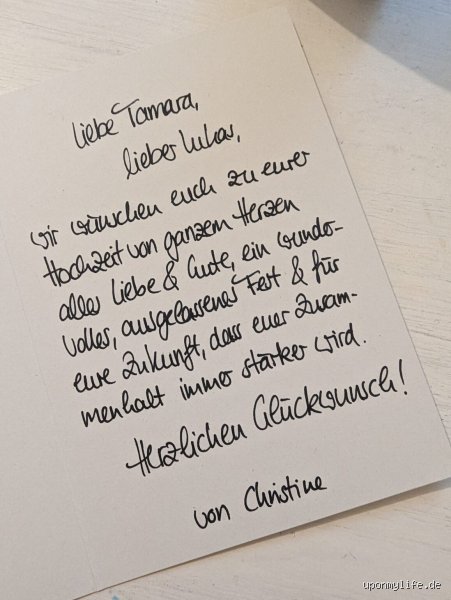 Liebe Tamara,
lieber Lukas,
wir wünschen euch zu eurer
Hochzeit von ganzem Herzen
alles Liebe & Gute, ein wunder-
volles, ausgelassenes Fest & für
eure Zukunft, dass euer Zusam-
menhalt immer stärker wird.
Herzlichen Glückwunsch!
von Christine
uponmylife.de